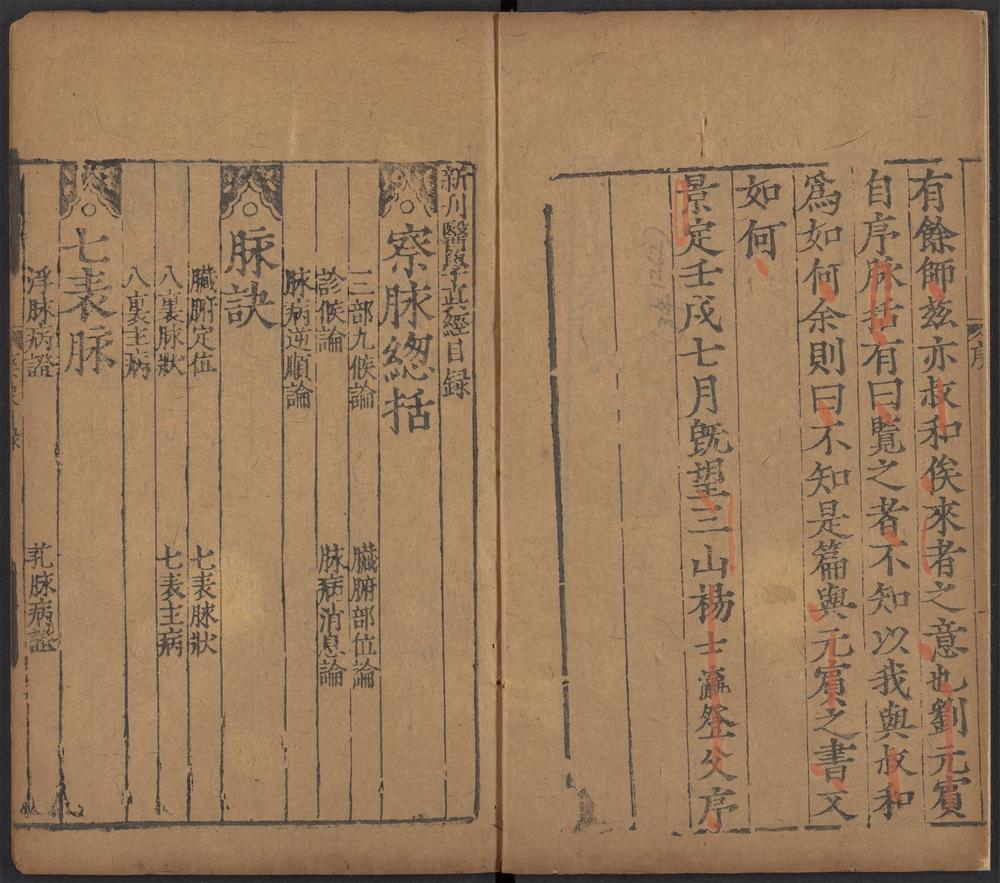 有餘師茲亦叔和俟來者之意也劉元賔
自序脉括有曰覧之者不知以我與叔和
爲如何余則曰不知是篇與元賔之書又
如何
景定壬戌七月旣望三山楊士瀛登父序
(3年1262)
序
新刊醫學真經目録
察脉總括
三部九候論
臟腑部位論
診候論
脉病消息論
脉病逆順論
脉訣
臟腑定位
七表脉狀
八裏脉狀
七表主病
八裏主病
七表脉
浮脉病證
芤脉病證